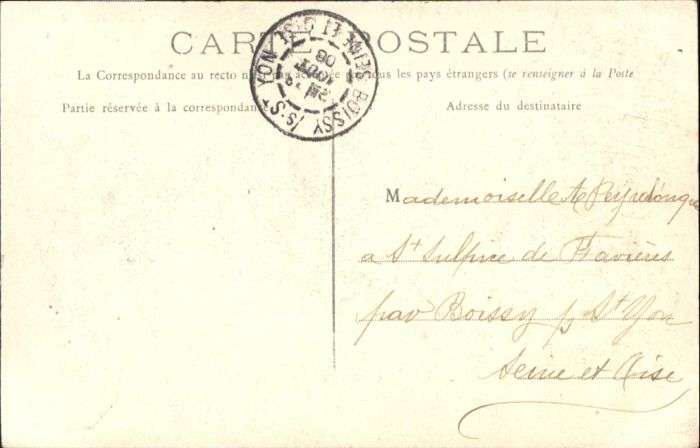 CARTE POSTALE
La Correspondance au recto n'est pas acceptée par tous les pays étrangers (se renseigner à la Poste
Partie réservée à la correspondance
Adresse du destinataire
BOISSY /s. St YON SEINE ET OISE
AOUT
08
Mademoiselle
a St Sulpice de Favières
par Boissy s/ St Yon
Seine et Oise